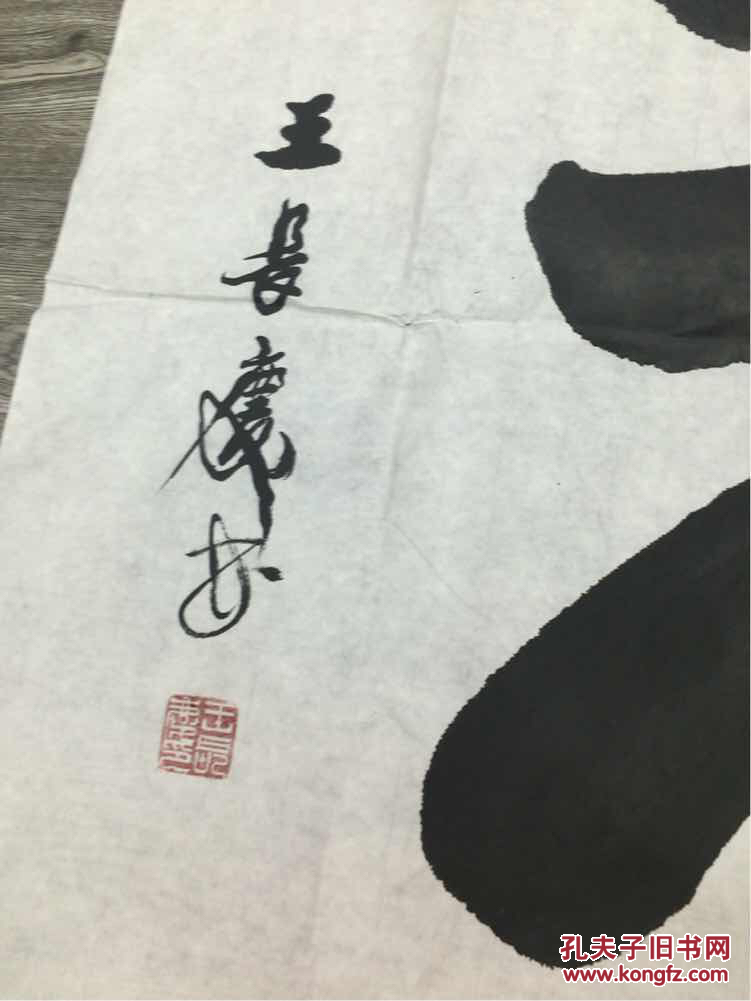 王長慶书
孔夫子旧书网
www.kongfz.com